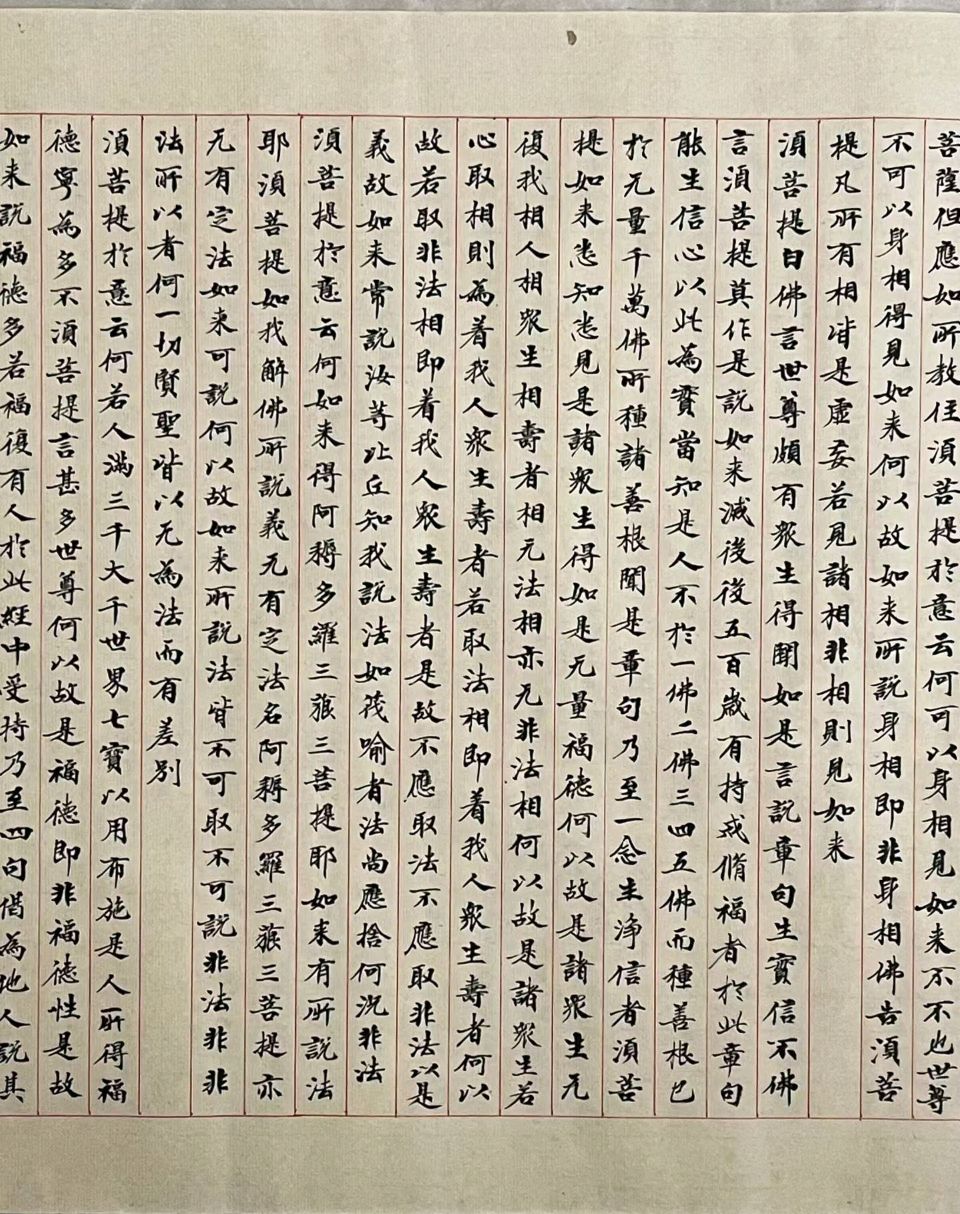 菩薩但應如所教住須菩提於意云何可以身相見如来不不也世尊
不可以身相得見如来何以故如来所說身相即非身相佛告須菩
提凡所有相皆是虛妄若見諸相非相則見如来
須菩提白佛言世尊頗有衆生得聞如是言說章句生實信不佛
言須菩提莫作是說如来滅後後五百歲有持戒脩福者於此章句
能生信心以此為實當知是人不於一佛二佛三四五佛而種善根已
於无量千萬佛所種諸善根聞是章句乃至一念生淨信者須菩
提如来悉知悉見是諸衆生得如是无量福德何以故是諸衆生无
復我相人相衆生相壽者相无法相亦无非法相何以故是諸衆生若
心取相則為着我人衆生壽者若取法相即着我人衆生壽者何以
故若取非法相即着我人衆生壽者是故不應取法不應取非法以是
義故如来常說汝等比丘知我說法如筏喻者法尚應捨何況非法
須菩提於意云何如来得阿耨多羅三藐三菩提耶如来有所說法
耶須菩提如我解佛所說義无有定法名阿耨多羅三藐三菩提亦
无有定法如来可說何以故如来所說法皆不可取不可說非法非非
法所以者何一切賢聖皆以无為法而有差別
須菩提於意云何若人滿三千大千世界七寶以用布施是人所得福
德寧為多不須菩提言甚多世尊何以故是福德即非福德性是故
如来說福德多若福復有人於此經中受持乃至四句偈為他人說其